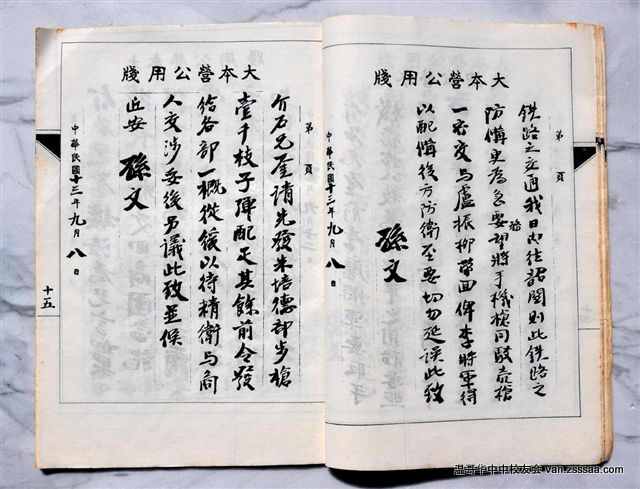 大本營公用牋
第 頁
鉄路之交通我日內往韶関則此鉄路之
防備更為急要務望將手機槍同駁壳槍
一交与盧振柳帶回俾李將軍得
以配備後方防衛至要切勿延误此致
孫文
中華民國十三年九月八日
大本營公用牋
第 頁
介石兄鉴请先發朱培德部步槍
壹千枝子彈配足其餘前令發
给各部一概從緩以待精衛与商
人交涉妥後另議此致並候
近安 孫文
中華民國十三年九月八日
十五
温哥华中中校友会 van.zsssaa.com